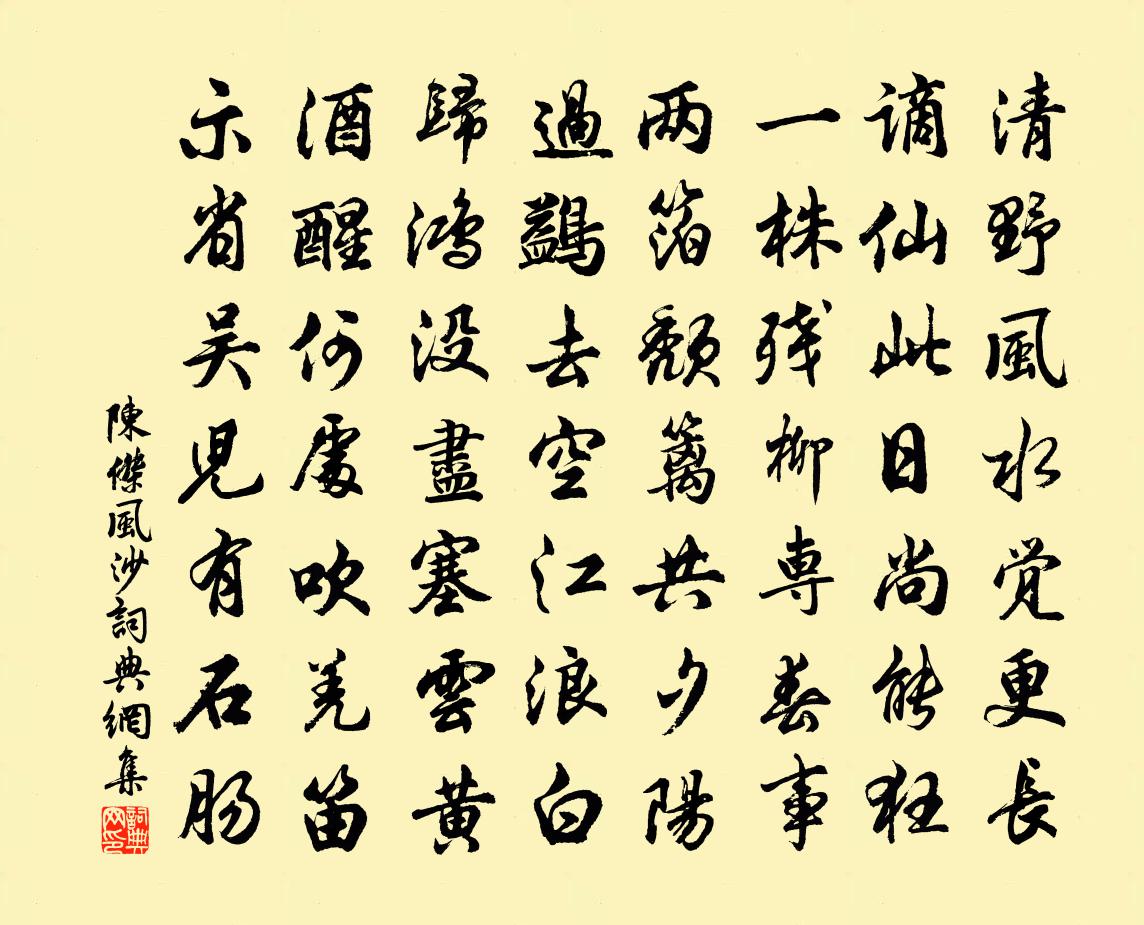 清野風水觉更長
謫仙此日尚能狂
一株残柳専春事
两箔颓籬共夕陽
過鷁去空江浪白
歸鴻没盡塞雲黄
酒醒何處吹羌笛
示省吴児有石肠
陳傑風沙詞典網集
詞典网印